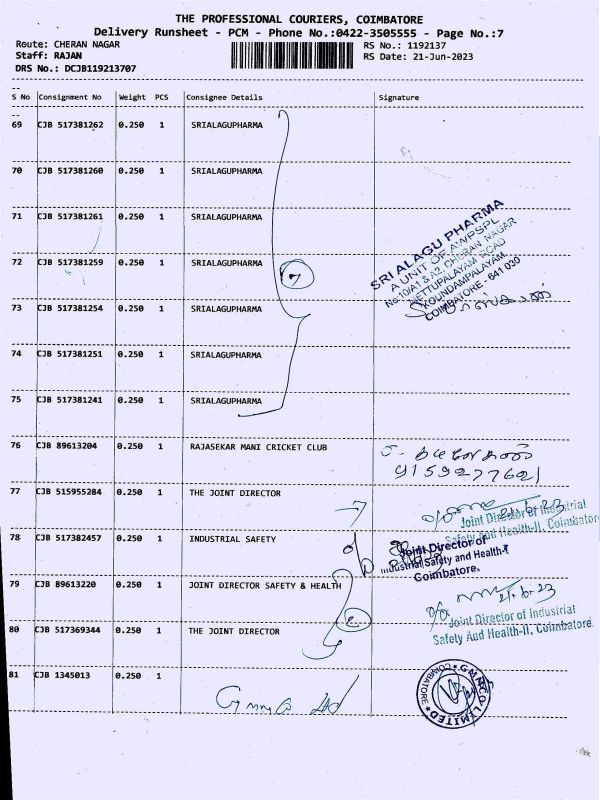 THE PROFESSIONAL COURIERS, COIMBATORE
Delivery Runsheet - PCM - Phone No.:0422-3505555 - Page No.:7
Route: CHERAN NAGAR RS No.: 1192137
Staff: RAJAN RS Date: 21-Jun-2023
DRS No.: DCJB119213707
S No Consignment No Weight PCS Consignee Details Signature
69 CJB 517381262 0.250 1 SRIALAGUPHARMA
70 CJB 517381260 0.250 1 SRIALAGUPHARMA
71 CJB 517381261 0.250 1 SRIALAGUPHARMA
SRI ALAGU PHARMA
A UNIT OF AWPSPL
No.10/A1 & A2, CHERAN NAGAR
METTUPALAYAM ROAD
KOUNDAMPALAYAM
COIMBATORE - 641 030
72 CJB 517381259 0.250 1 SRIALAGUPHARMA
7
73 CJB 517381254 0.250 1 SRIALAGUPHARMA
74 CJB 517381251 0.250 1 SRIALAGUPHARMA
75 CJB 517381241 0.250 1 SRIALAGUPHARMA
76 CJB 89613204 0.250 1 RAJASEKAR MANI CRICKET CLUB
9159277621
77 CJB 515955284 0.250 1 THE JOINT DIRECTOR
21.6.23
Joint Director of Industrial
Safety And Health-II, Coimbatore
78 CJB 517382457 0.250 1 INDUSTRIAL SAFETY
Joint Director of
Industrial Safety and Health-I
Coimbatore.
79 CJB 89613220 0.250 1 JOINT DIRECTOR SAFETY & HEALTH
21.6.23
Joint Director of Industrial
Safety And Health-II, Coimbatore
80 CJB 517369344 0.250 1 THE JOINT DIRECTOR
81 CJB 1345013 0.250 1
LIMITED * COIMBATORE *